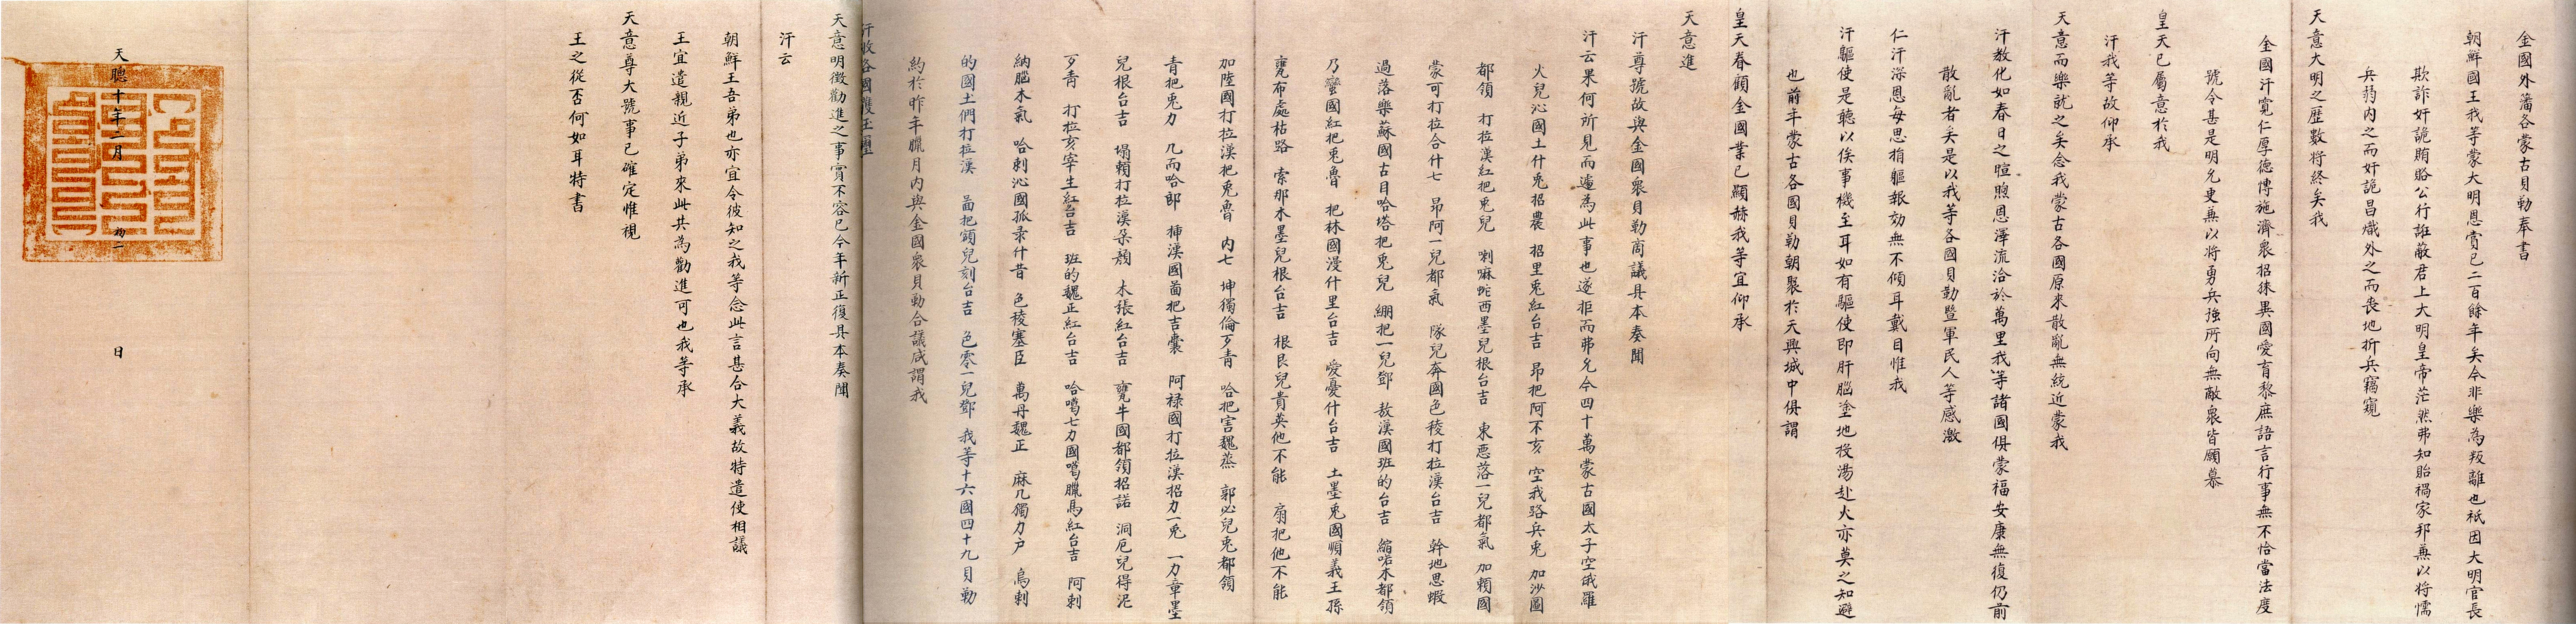 金國外藩各蒙古貝勒奉書
朝鮮國王我等蒙大明恩賞已二百餘年矣今非樂為叛離也祇因大明官長
欺詐奸詭賄賂公行誑蔽君上大明皇帝茫然弗知貽禍家邦兼以將懦
兵弱內之而奸詭昌熾外之而喪地折兵竊窺
天意大明之歷數將終矣我
金國汗寬仁厚德博施濟衆招徠異國愛育黎庶語言行事無不恰當法度
號令甚是明允更兼以將勇兵強所向無敵衆皆願慕
皇天已屬意於我
汗我等故仰承
天意而樂就之矣念我蒙古各國原來散亂無統近蒙我
汗教化如春日之暄煦恩澤流洽於萬里我等諸國俱蒙福安康無復仍前
散亂者矣是以我等各國貝勒暨軍民人等感激
仁汗深恩每思捐軀報効無不傾耳戴目惟我
汗驅使是聽以俟事機至耳如有驅使即肝腦塗地投湯赴火亦莫之知避
也前年蒙古各國貝勒朝聚於天興城中俱謂
皇天眷顧金國業已顯赫我等宜仰承
天意進
汗尊號故與金國衆貝勒商議具本奏聞
汗云果何所見而遽為此事也遂拒而弗允今四十萬蒙古國太子空俄羅
火兒沁國土什兎招農 招里兎紅台吉 昻把阿不亥 空我珞兵兎 加沙圖
都領 打拉漢紅把兎兒 喇嘛蛇西墨兒根台吉 東惡落一兒都氣 加賴國
蒙可打拉合什七 昻阿一兒都氣 隊兒奔國色稜打拉漢台吉 幹地思蝦
過落樂蘇國古目哈塔把兎兒 綳把一兒鄧 敖漢國班的台吉 縮喏木都領
乃蠻國紅把兎魯 把林國漫什里台吉 愛憂什台吉 土墨兎國順義王孫
甕布處枯路 索那木墨兒根台吉 根艮兒貴英他不能 扇把他不能
加陸國打拉漢把兎魯 內七 坤獨倫歹青 哈把害魏蒸 郭必兒兎都領
青把兎力 几而哈郎 揷漢國啚把吉囊 阿禄國打拉漢招力一兎 一力章墨
兒根台吉 塌賴打拉漢朵顏 木張紅台吉 甕牛國都領招諾 洞厄兒得泥
歹青 打拉亥宰生紅台吉 班的魏正紅台吉 哈噶七力國噶臘馬紅台吉 阿剌
納腦木氣 哈剌沁國孤彔什昔 色稜塞臣 萬丹魏正 麻几獨力户 烏剌
的國土們打拉漢 啚把額兒刻台吉 色零一兒鄧 我等十六國四十九貝勒
約於昨年臘月內與金國衆貝勒合議咸謂我
汗收各國獲玉璽
天意明徵勸進之事實不容已今年新正復具本奏聞
汗云
朝鮮王吾弟也亦宜令彼知之我等念此言甚合大義故特遣使相議
王宜遣親近子弟來此共為勸進可也我等承
天意尊大號事已確定惟視
王之從否何如耳特書
天聰十年二月 初二 日